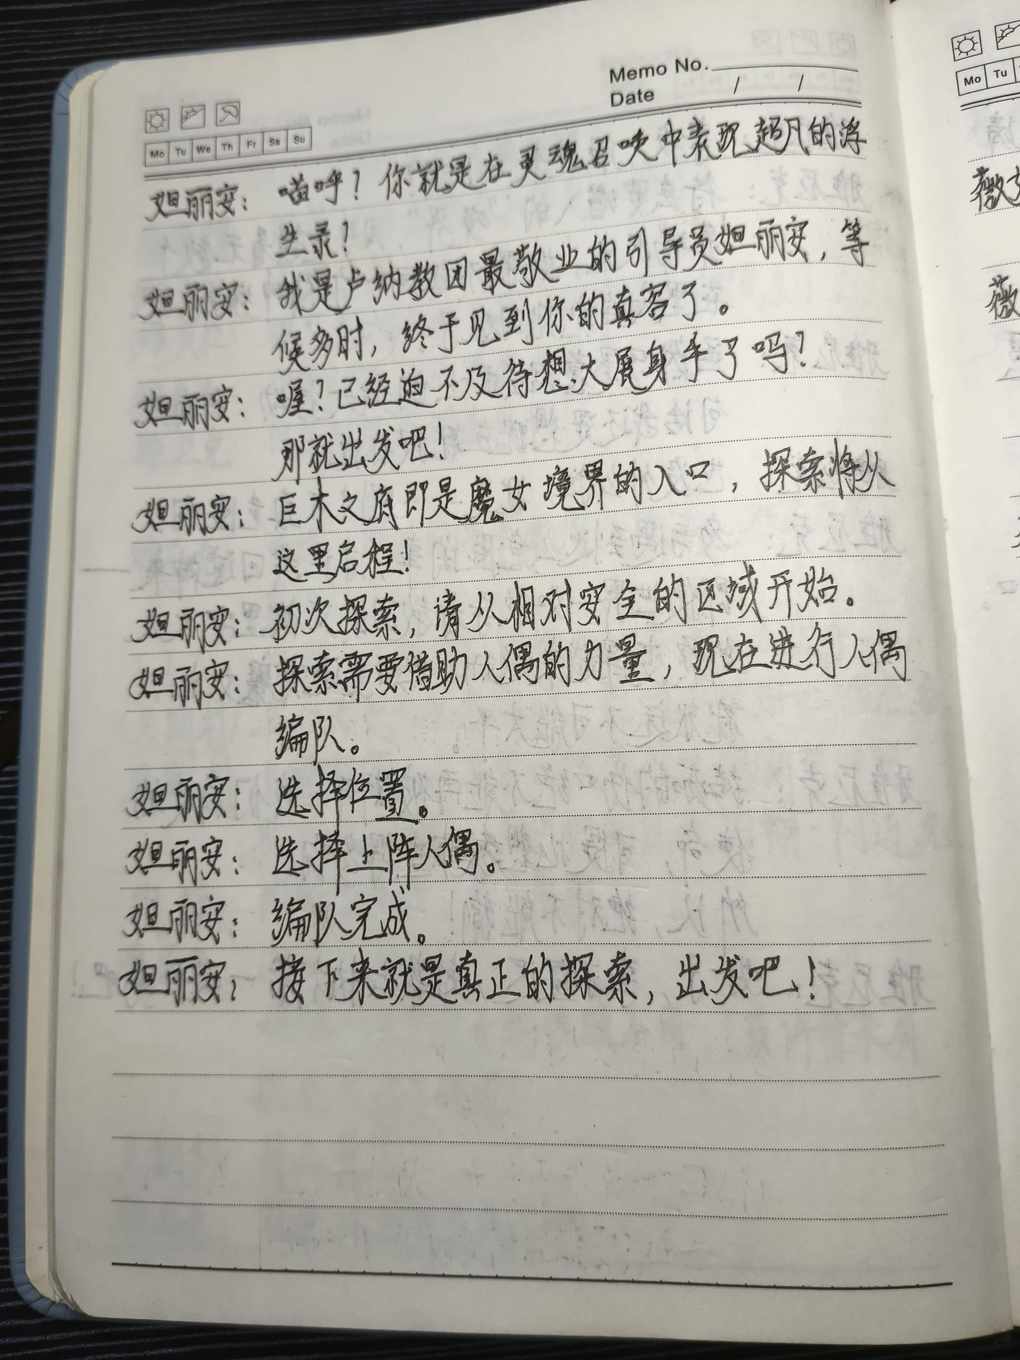 Memo No.
Date / /
Mo Tu We Th Fr Sa Su
妲丽安：喵呼？你就是在灵魂召唤中表现超凡的浮
生录？
妲丽安：我是卢纳教团最敬业的引导员妲丽安，等
候多时，终于见到你的真容了。
妲丽安：喔？已经迫不及待想大展身手了吗？
那就出发吧！
妲丽安：巨木之府即是魔女境界的入口，探索将从
这里启程！
妲丽安：初次探索，请从相对安全的区域开始。
妲丽安：探索需要借助人偶的力量，现在进行人偶
编队。
妲丽安：选择位置。
妲丽安：选择上阵人偶。
妲丽安：编队完成。
妲丽安：接下来就是真正的探索，出发吧！
Mo Tu
薇
薇